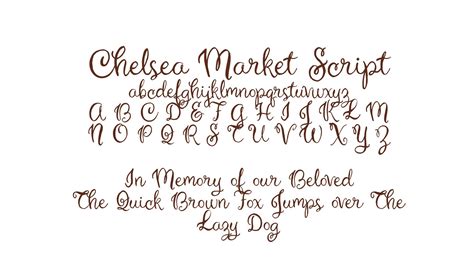 Chelsea Market Script
abcdefghijklmnopqrstuvwxyz
A B C D E F G H I J K L M
N O P Q R S T U V W X Y Z
In Memory of our Beloved
The Quick Brown Fox Jumps over The
Lazy Dog